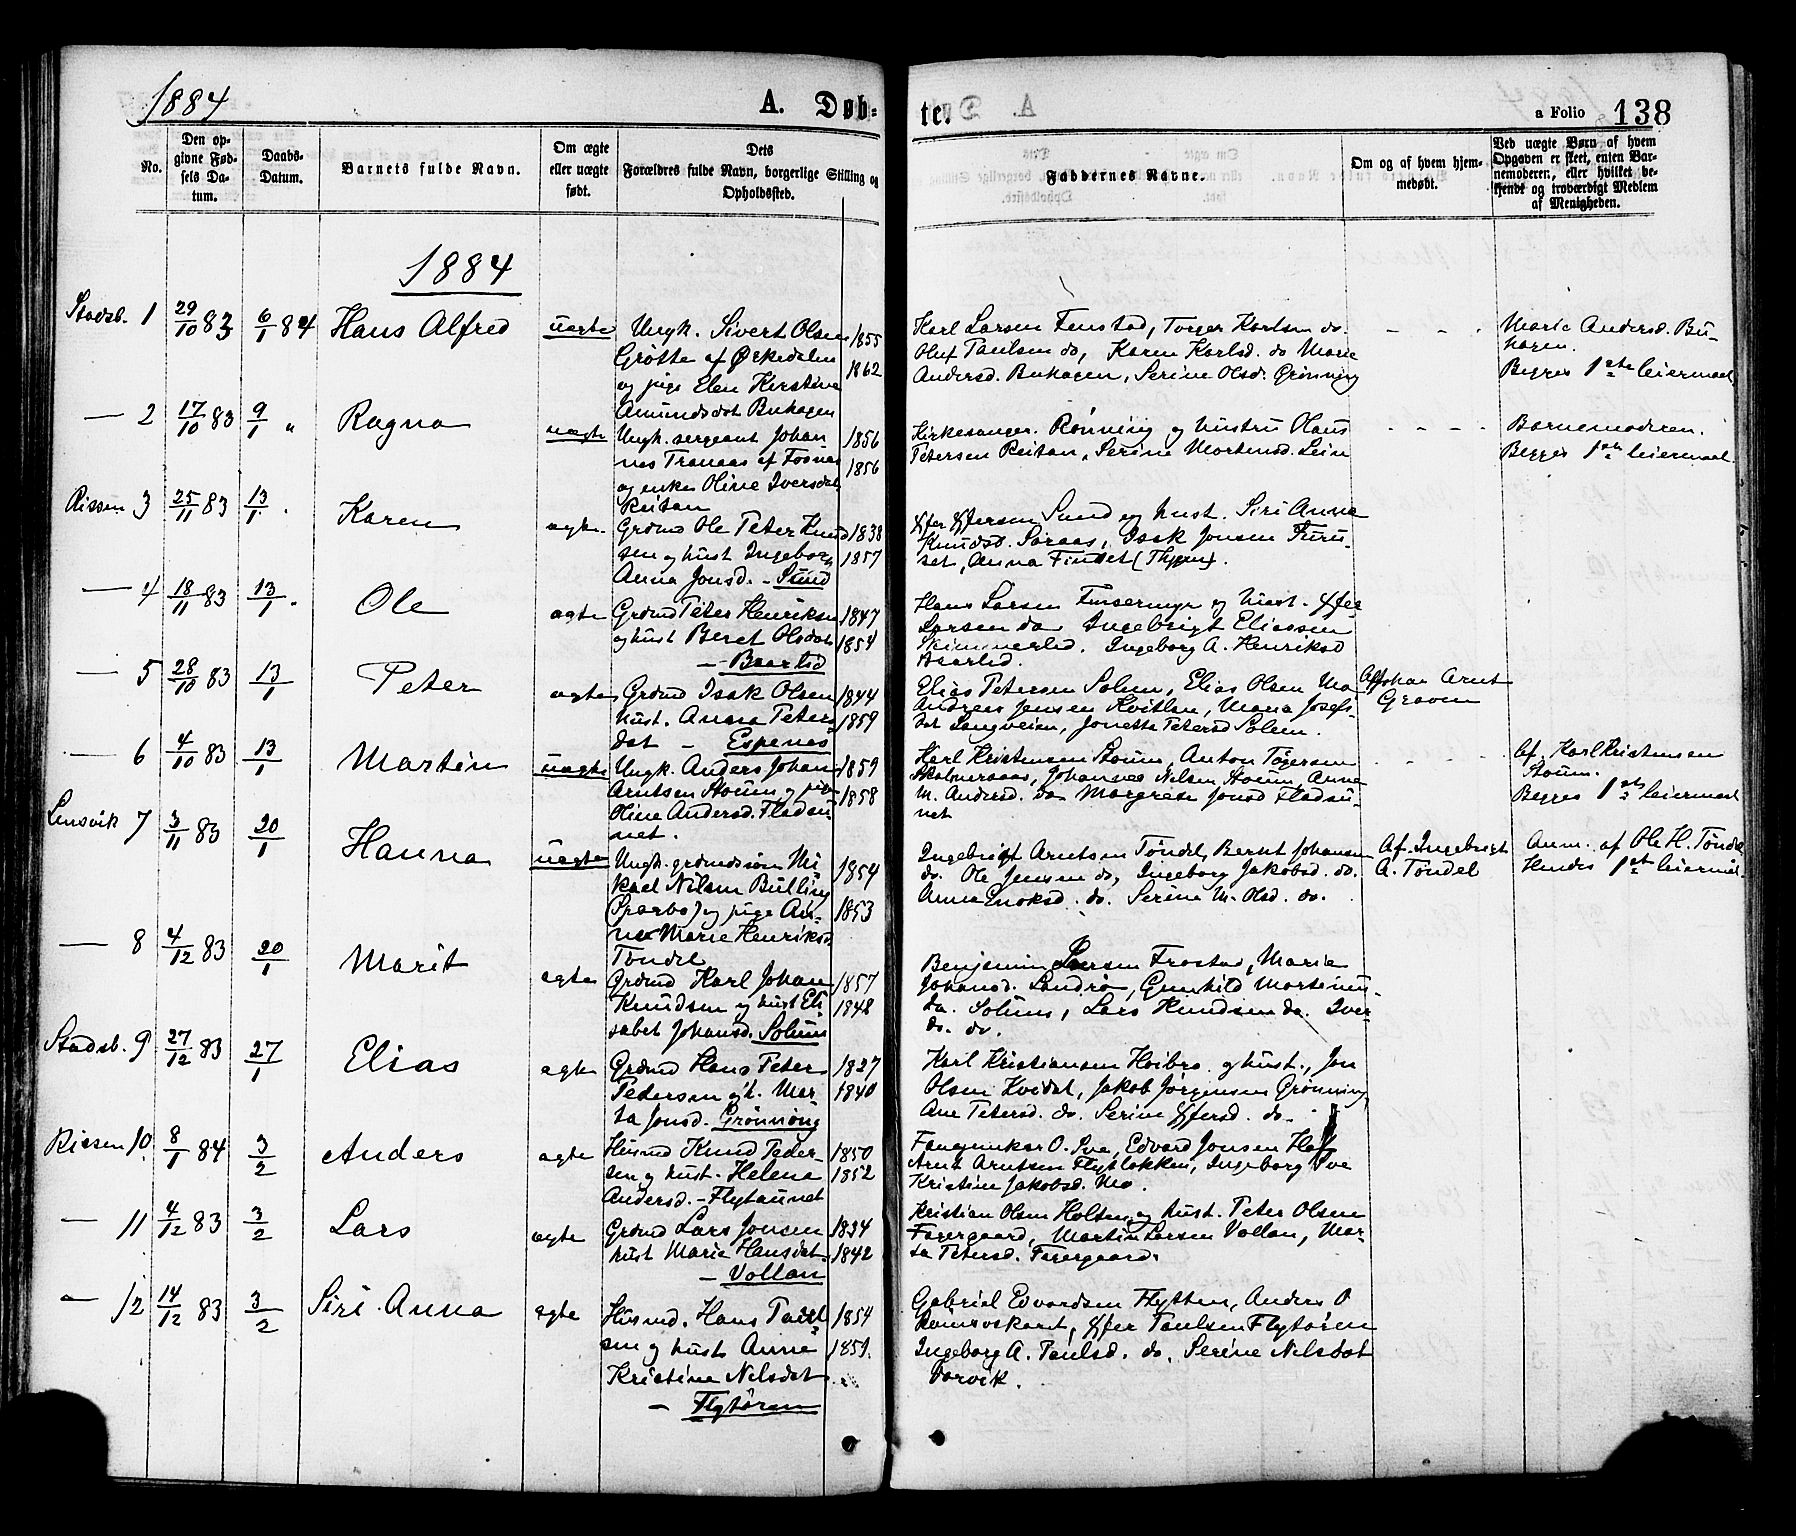 1884
A. Døb-
te.
a Folio 138
No.
Den op-
givne Fød-
sels Da-
tum.
Daabs-
Datum.
Barnets fulde Navn.
Om ægte
eller uægte
født.
Dets
Forældres fulde Navn, borgerlige Stilling og
Opholdssted.
Faddernes Navne.
Om og af hvem hjem-
medøbt.
Ved uægte Børn af hvem
Opgaven er skeet, enten Bar-
nemoderen, eller hvilket be-
kjendt og troværdigt Medlem
af Menigheden.
1884
Stadsb. 1 29/10 83 6/1 84 Hans Alfred uægte
Ungk. Sivert Olsen 1855
Grøtte af Ørkedalen
1862
og pige Elen Kirstine
Amundsdat Buhagen
Karl Larsen Fenstad, Torger Karlsen do.
Oluf Paulsen do, Karen Karlsd. do Marie
Andersd. Buhagen, Serine Olsd. Grønning
Marie Andersd. Bu-
hagen.
Begges 1ste leiermaal
— 2 17/10 83 9/1 " Ragna uægte
Ungk. sergeant Johan 1856
nes Tranaas af Fosnes 1856
og enke Oline Iversdat
Reitan
Kirkesanger Rønning og hustru Olaus
Petersen Reitan, Serine Mortensd. Lein
Barnemoderen.
Begges 1ste leiermaal
Rissen 3 25/11 83 13/1 Karen ægte
Grdmd Ole Peter Knud 1838
sen og hust Ingeborg 1857
Anna Jonsd. - Sund
Sund og hust. Siri Anna
Knudsd. Soraas, Isak Jonsen Furu-
set, Anna Findset
— 4 18/11 83 13/1 Ole ægte
Grdmd Peter Henriksen 1847
og hust Beret Olsdat 1854
Hans Larsen og hust.
Larsen do Ingebrigt Eliassen
Skimmerlid. Ingeborg A. Henriksd
— 5 28/10 83 13/1 Peter ægte
Grdmd Isak Olsen 1844
hust. Anna Peters 1859
dat - Espenes
Elias Petersen Solem, Elias Olsen Mo
Andreas Jensen Kvitlan, Maria Josefs-
dat Langveien, Jonetta Petersd Solem.
Af Johan Arnt
Graven
— 6 4/10 83 13/1 Martin uægte
Ungk. Anders Johan 1859
Arntsen Stoum og pige 1858
Oline Andersd. Fladsu
net.
Karl Kristensen Stoum, Anton
Johannes Nilsen Stoum, Anne
M. Andersd. do Margrete Jonsd Fladsu-
net
Af Karl Kristensen
Stoum.
Begges 1ste leiermaal
Lensvik 7 3/11 83 20/1 Hanna uægte
Ungk. grdmdssøn Mi 1854
kael Nilsen Bulling
(Sparbo) og pige An- 1853
ne Marie Henriksd
Tøndel
Ingebrigt Arntsen Tøndel, Bernt Johansen
do. Ole Jensen do, Ingeborg Jakobsd. do.
Anna Enoksd. do. Serine M. Olsd. do.
Af Ingebrigt
A. Tøndel
Anm. af Ole H. Tøndel
Hendes 1ste leiermål
— 8 4/12 83 20/1 Marit ægte
Grdmd Karl Johan 1857
Knudsen og hust Eli 1848
sabet Johansd. Solum
Benjamin Larsen Frostad, Marie
Johansd. Landrø, Gunhild Martinus-
da. Solum, Lars Knudsen do. Iver
do. do.
Stadsb. 9 27/12 83 27/1 Elias ægte
Grdmd Hans Peter 1827
Pedersen og h. Mar- 1840
ta Jonsd. Grønning
Karl Kristiansen Høibro og hust., Jon
Olsen Kvidal, Jakob Jørgensen Grønning
Ane Petersd. do. Serine do.
Rissen 10 8/1 84 3/2 Anders ægte
Husmd Knud Peder- 1850
sen og hust. Helena 1852
Andersd. - Flytaunet
O. Sve, Edvard Jonsen
Arnt Arntsen Flytløkken, Ingeborg Sve
Kristine Jakobsd. Mo.
— 11 4/12 83 3/2 Lars ægte
Grdmd Lars Jonsen 1834
hust Marie Hansdat 1842
— Vollan
Kristian Olsen Holten og hust. Peter Olsen
Farergaard, Martin Larsen Vollan, Mar-
ta Petersd. Farergaard.
— 12 14/12 83 3/2 Siri Anna ægte
Husmd. Hans Paul 1854
sen og hust Anne 1859.
Kristine Nilsdat
— Flytøren
Gabriel Edvardsen Flytten, Anders O
Paulsen Flytøren
Ingeborg A. Paulsd. do. Serine Nilsdat
Vorvik.